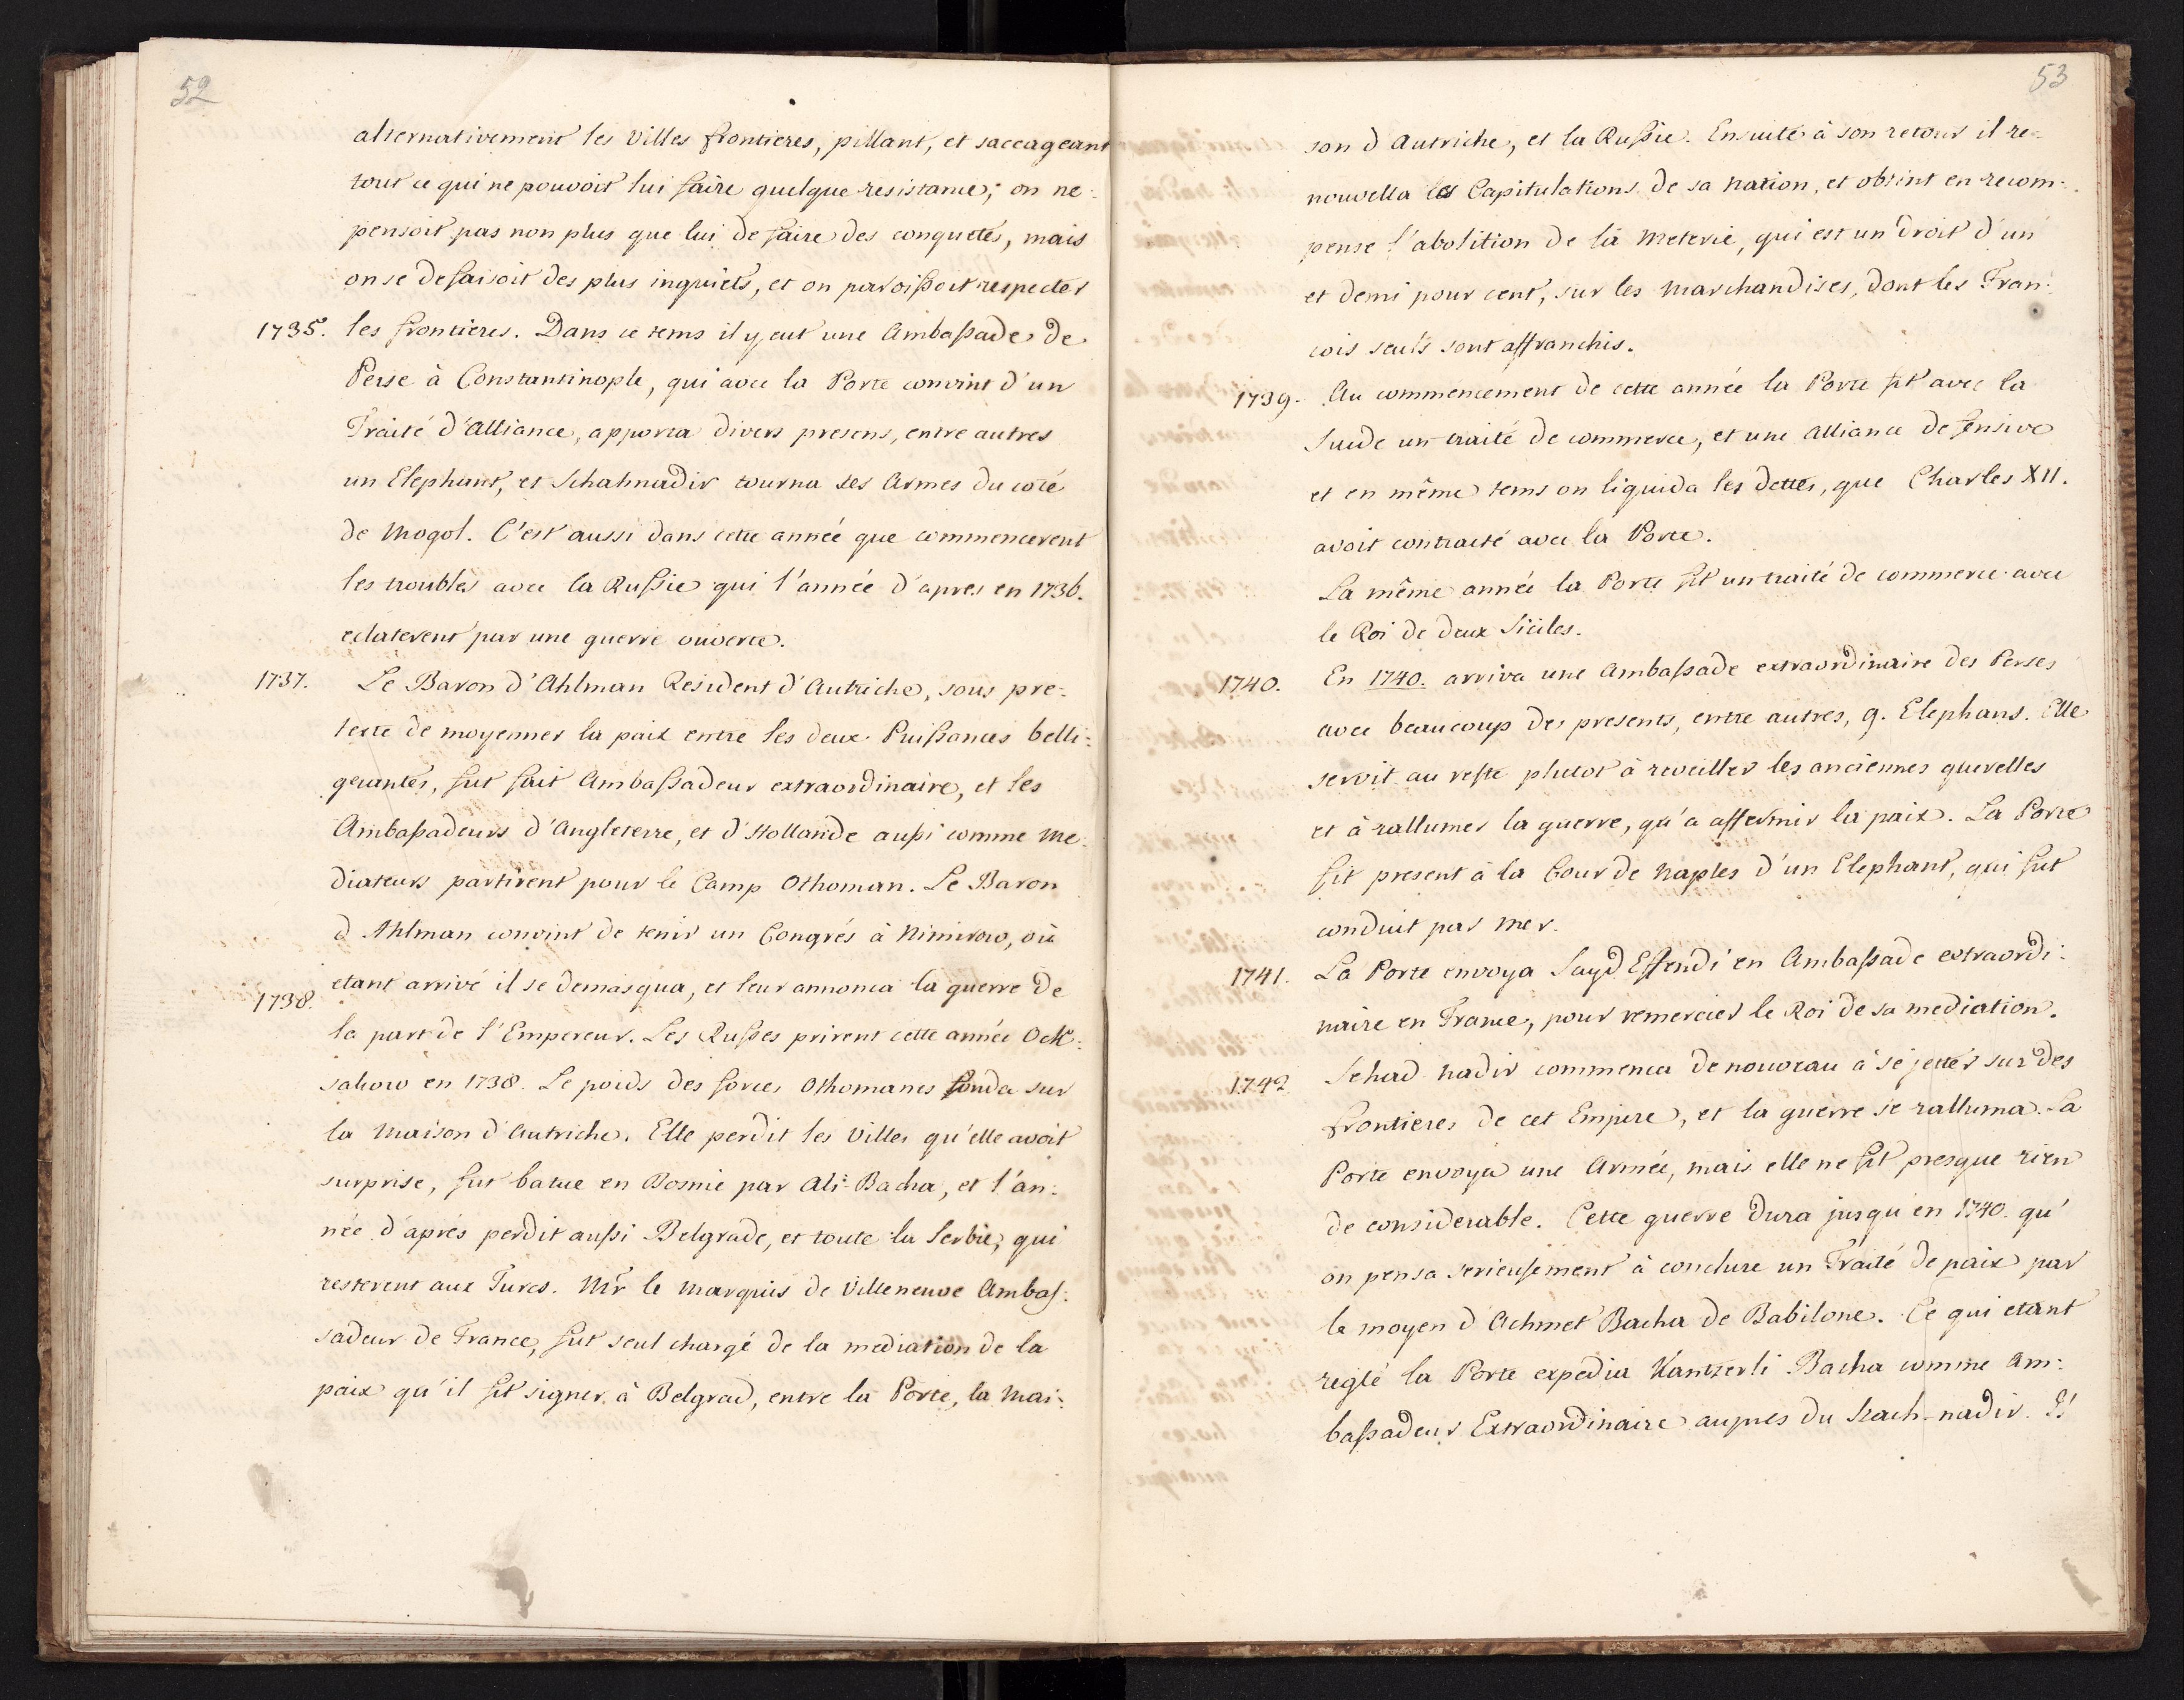 52
alternativement les Villes frontieres, pillant, et saccageant
tout ce qui ne pouvoit lui faire quelque resistance; on ne
pensoit pas non plus que lui de faire des conquetes, mais
on se defaisoit des plus inquiets, et on paroissoit respecter
1735. les frontieres. Dans ce tems il y eut une Ambassade de
Perse à Constantinople, qui avec la Porte convint d'un
Traité d'Alliance, apporta divers presens, entre autres
un Elephant, et Schahnadir tourna ses Armes du coté
de Mogol. C'est aussi dans cette année que commencerent
les troubles avec la Russie qui l'année d'apres en 1736.
eclaterent par une guerre ouverte.
1737. Le Baron d'Ahlman Resident d'Autriche, sous pre:
texte de moyenner la paix entre les deux Puissances belli:
gerantes, fut fait Ambassadeur extraordinaire, et les
Ambassadeurs d'Angleterre, et d'Hollande aussi comme Me:
diateurs partirent pour le Camp Othoman. Le Baron
d'Ahlman convint de tenir un Congrés à Nimirow, où
etant arrivé il se demasqua, et leur annonca la guerre de
1738. la part de l'Empereur. Les Russes prirent cette année Ock:
sakow en 1738. Le poids des forces Othomanes fonda sur
la Maison d'Autriche. Elle perdit les Villes qu'elle avoit
surprise, fut batue en Bosnie par Ali-Bacha, et l'an:
née d'aprés perdit aussi Belgrade, et toute la Serbie, qui
resterent aux Turcs. Mr le Marquis de Villeneuve Ambas:
sadeur de France, fut seul chargé de la mediation de la
paix qu'il fit signer à Belgrad, entre la Porte, la Mai:
53
son d'Autriche, et la Russie. Ensuite à son retour il re:
nouvella les Capitulations de sa Nation, et obtint en recom:
pense l'abolition de la Meterie, qui est un droit d'un
et demi pour cent, sur les Marchandises, dont les Fran:
cois seuls sont affranchis.
1739. Au commencement de cette année la Porte fit avec la
Suede un traité de commerce, et une Alliance defensive
et en même tems on liquida les dettes, que Charles XII.
avoit contracté avec la Porte.
La même année la Porte fit un traité de commerce avec
le Roi de deux Siciles.
1740. En 1740. arriva une Ambassade extraordinaire des Perses
avec beaucoup des presents, entre autres, 9. Elephans. Elle
servit au reste plutot à reveiller les anciennes querelles
et à rallumer la guerre, qu'a affermir la paix. La Porte
fit present à la Cour de Naples d'un Elephant, qui fut
conduit par Mer.
1741. La Porte envoya Sayd Effendi en Ambassade extraordi:
naire en France, pour remercier le Roi de sa mediation.
1742 Schad nadir commenca de nouveau à se jetter sur des
frontieres de cet Empire, et la guerre se ralluma. La
Porte envoya une Armée, mais elle ne fit presque rien
de considerable. Cette guerre dura jusqu'en 1740. qu'
on pensa serieusement à conclure un Traité de paix par
le moyen d'Achmet Bacha de Babilone. Ce qui etant
reglé la Porte expedia Kantzerli Bacha comme Am:
bassadeur Extraordinaire aupres du Scach-nadir. Il